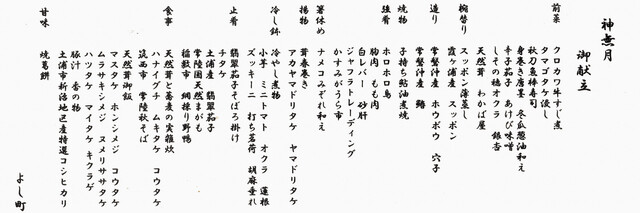 神無月
御献立
前菜
クロカワ牛すじ煮
タマゴタケ浸し
秋刀魚棒寿司
身巻き唐墨 冬瓜葱油和え
辛子茄子 あけび味噌
しその穂オクラ 銀杏
天然茸 わかば屋
椀替り
スッポン薄蒸し
霞ヶ浦産 スッポン
造り
常磐沖産 ホウボウ 穴子
常磐沖産 鰆
焼物
子持ち鮎油煮焼
強肴
ホロホロ鳥
胸肉 もも肉
白レバー 砂肝
ジャフラトレーディング
かすみがうら市
箸休め
ナメコみぞれ和え
揚物
茸春巻き
アカヤマドリタケ ヤマドリタケ
冷し鉢
冷やし煮物
小芋 ミニトマト オクラ 蓮根
ズッキーニ 打ち茗荷 胡麻垂れ
止肴
翡翠茄子そぼろ掛け
チタケ
土浦産 翡翠茄子
常陸国天然まがも
稲敷市 網採り野鴨
食事
天然茸と蕎麦の実雑炊
ハナイグチ ムキタケ コウタケ
筑西市 常陸秋そば
天然茸御飯
マスタケ ホンシメジ コウタケ
ムラサキシメジ ヌメリササタケ
ハツタケ マイタケ キクラゲ
豚汁 香の物
土浦市新治地区産特選コシヒカリ
甘味
焼葛餅
よし町